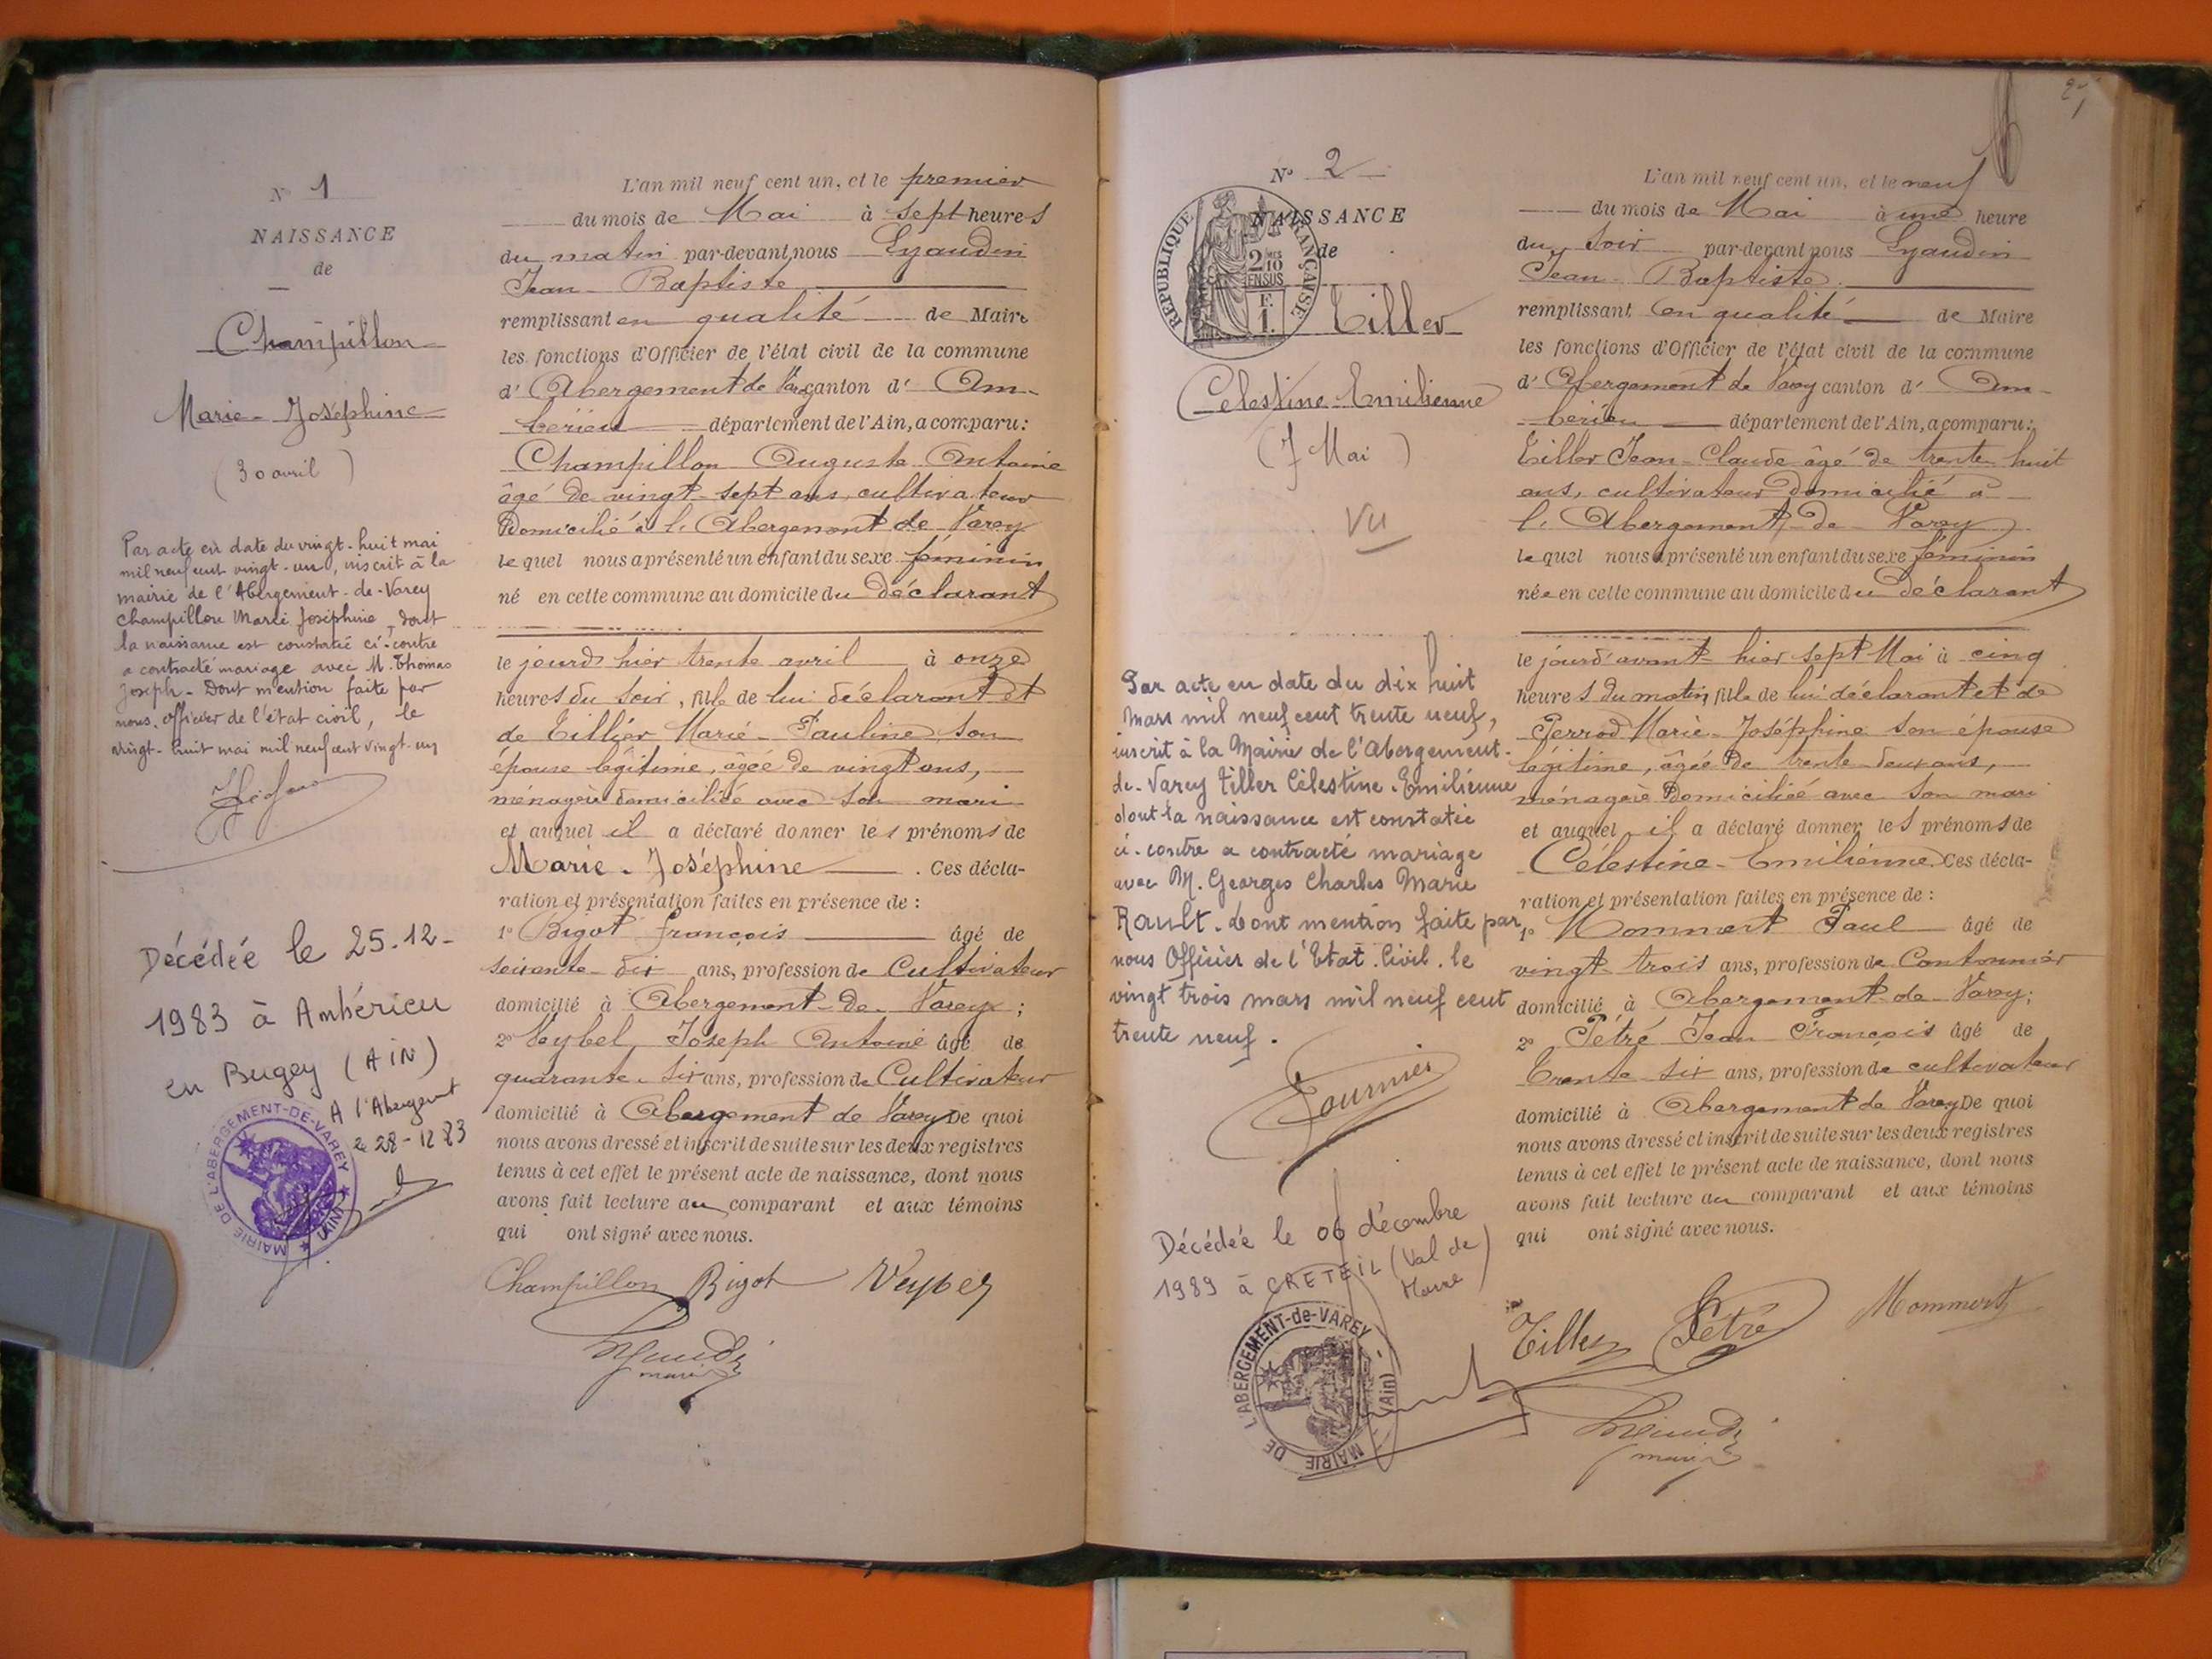 N° 1
NAISSANCE
de
Champillon
Marie-Joséphine
(30 avril)
Par acte en date du vingt-huit mai
mil neuf cent vingt-un, inscrit à la
mairie de l'Abergement-de-Varey
Champillon Marie Joséphine, dont
la naissance est constatée ci-contre
a contracté mariage avec M. Thomas
Joseph - Dont mention faite par
nous, officier de l'état civil, le
vingt-huit mai mil neuf cent vingt-un
Décédée le 25-12-
1983 à Ambérieu
en Bugey (AIN)
A l'Abergement
le 28-12 83
MAIRIE DE L'ABERGEMENT-DE-VAREY (AIN)
L'an mil neuf cent un, et le premier
du mois de Mai à sept heures
du matin par-devant nous Lyaudin
Jean-Baptiste
remplissant en qualité de Maire
les fonctions d'Officier de l'état civil de la commune
d'Abergement de Varey canton d'Am-
bérieu département de l'Ain, a comparu:
Champillon Auguste Antoine
âgé de vingt-sept ans, cultivateur
domicilié à l'Abergement de Varey
lequel nous a présenté un enfant du sexe féminin
né en cette commune au domicile du déclarant
le jourd'hier trente avril à onze
heures du soir, fille de lui déclarant et
de Tillier Marie-Pauline son
épouse légitime, âgée de vingt ans,
ménagère domiciliée avec son mari
et auquel il a déclaré donner les prénoms de
Marie-Joséphine. Ces décla-
ration et présentation faites en présence de :
1° Bigot François âgé de
soixante-dix ans, profession de Cultivateur
domicilié à Abergement-de-Varey ;
2° Veybel Joseph Antoine âgé de
quarante-six ans, profession de Cultivateur
domicilié à Abergement de Varey De quoi
nous avons dressé et inscrit de suite sur les deux registres
tenus à cet effet le présent acte de naissance, dont nous
avons fait lecture au comparant et aux témoins
qui ont signé avec nous.
Champillon Bigot
maire
27
N° 2
NAISSANCE
de
RÉPUBLIQUE FRANÇAISE
2/10 EN SUS
F.
1.
Tiller
Célestine-Emilienne
(7 Mai)
VU
Par acte en date du dix huit
mars mil neuf cent trente neuf,
inscrit à la Mairie de l'Abergement-
de-Varey Tiller Célestine-Emilienne
dont la naissance est constatée
ci-contre a contracté mariage
avec M. Georges Charles Marie
Rault. Dont mention faite par
nous Officier de l'Etat-Civil. le
vingt trois mars mil neuf cent
trente neuf.
Fournier
Décédée le 06 décembre
1989 à CRETEIL (Val de
Marne)
MAIRIE DE L'ABERGEMENT-de-VAREY (Ain)
L'an mil neuf cent un, et le neuf
du mois de Mai à une heure
du soir par-devant nous Lyaudin
Jean-Baptiste
remplissant en qualité de Maire
les fonctions d'Officier de l'état civil de la commune
d'Abergement de Varey canton d'Am-
bérieu département de l'Ain, a comparu:
Tiller Jean-Claude âgé de trente huit
ans, cultivateur domicilié à
l'Abergement-de-Varey
lequel nous a présenté un enfant du sexe féminin
née en cette commune au domicile du déclarant
le jourd'avant-hier sept Mai à cinq
heures du matin, fille de lui déclarant et de
Perrod Marie-Joséphine son épouse
légitime, âgée de trente-deux ans,
ménagère domiciliée avec son mari
et auquel il a déclaré donner les prénoms de
Célestine-Emilienne. Ces décla-
ration et présentation faites en présence de :
1° Mommert Paul âgé de
vingt-trois ans, profession de Cantonnier
domicilié à Abergement-de-Varey;
2° Pétré Jean François âgé de
Trente six ans, profession de cultivateur
domicilié à Abergement de Varey De quoi
nous avons dressé et inscrit de suite sur les deux registres
tenus à cet effet le présent acte de naissance, dont nous
avons fait lecture au comparant et aux témoins
qui ont signé avec nous.
Tiller Petré Mommert
maire